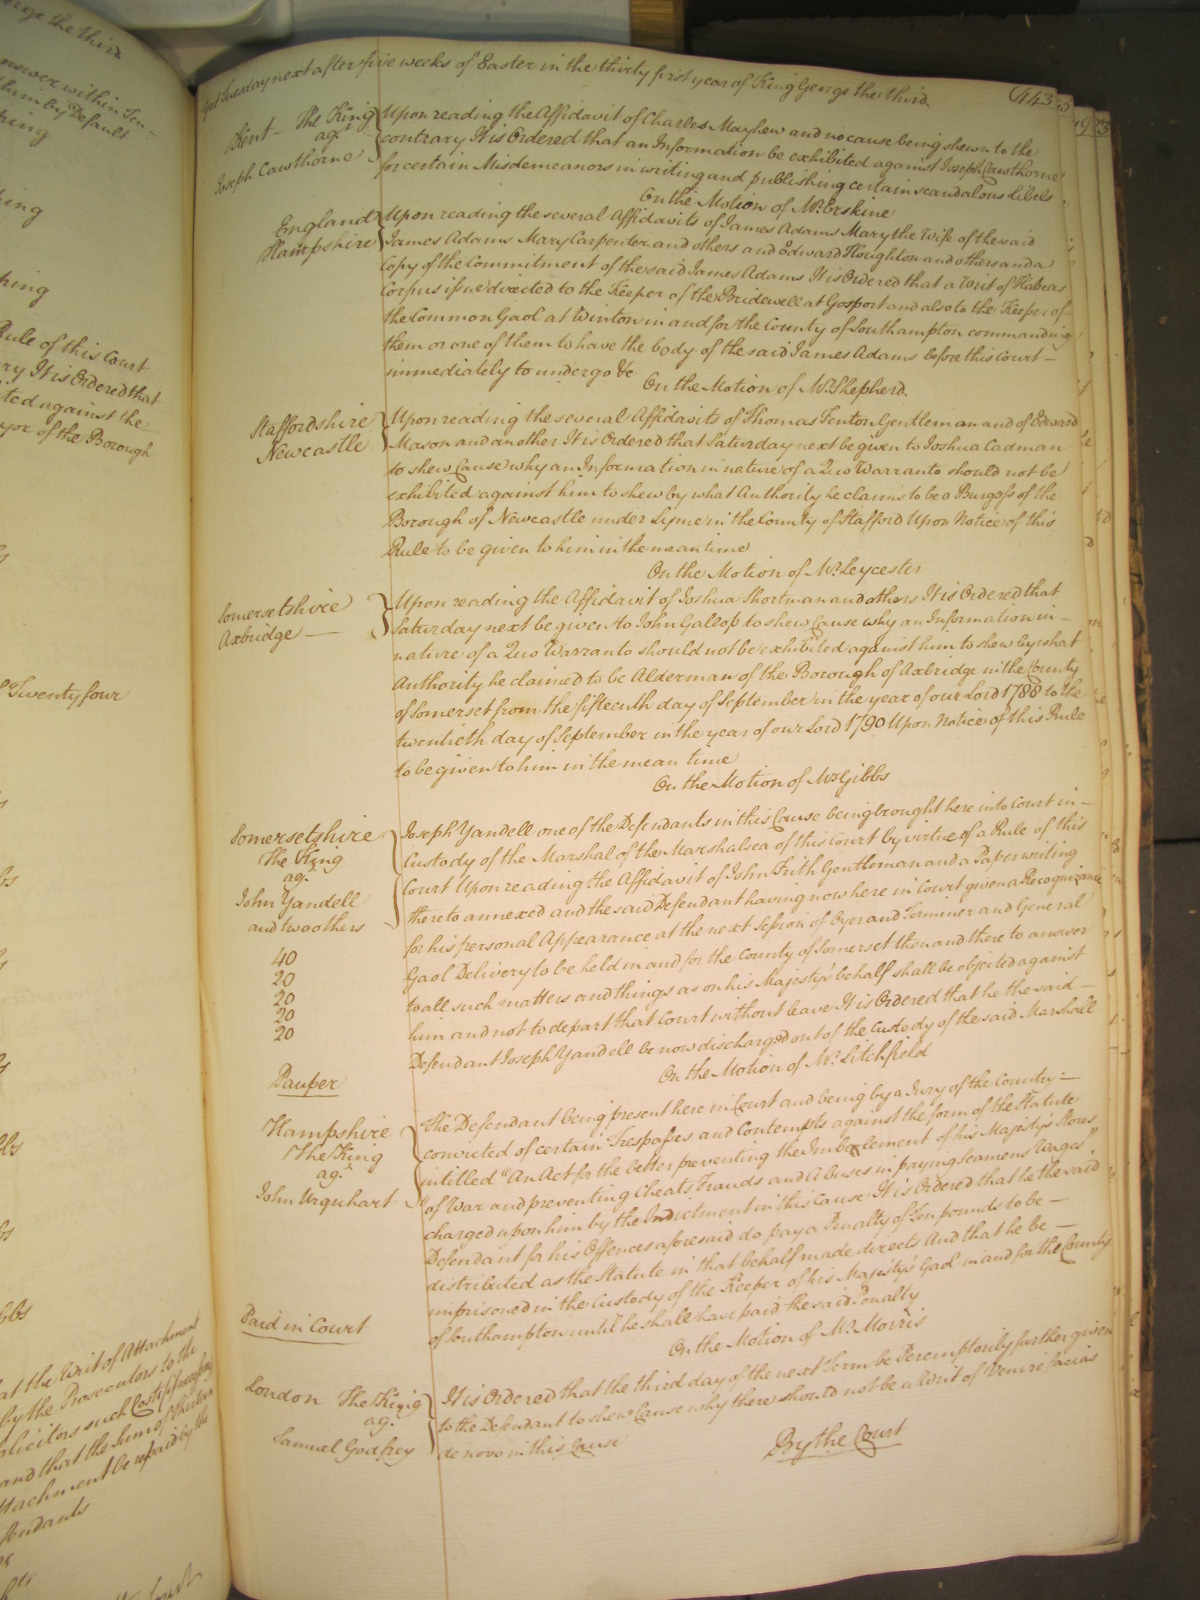 Yet Tuesday next after five weeks of Easter in the thirty first year of King George the third.
443
Kent - The King
agt
Joseph Cawthorne
Upon reading the Affidavit of Charles Mayhew and no cause being shewn to the
contrary It is Ordered that an Information be exhibited against Joseph Cawthorne
for certain Misdemeanors in writing and publishing certain scandalous Libels
On the Motion of Mr. Erskine
England
Hampshire
Upon reading the several Affidavits of James Adams Mary the Wife of the said
James Adams Mary Carpenter and others and Edward Houghton and others and a
Copy of the Commitment of the said James Adams It is Ordered that a Writ of Habeas
Corpus issue directed to the Keeper of the Bridewell at Gosport and also to the Keeper of
the Common Gaol at Winton in and for the County of Southampton commanding
them or one of them to have the body of the said James Adams before this Court -
immediately to undergo &c
On the Motion of Mr. Shepherd.
Staffordshire
Newcastle
Upon reading the several Affidavits of Thomas Fenton Gentleman and of Edward
Mason and another It is Ordered that Saturday next be given to Joshua Cadman
to shew Cause why an Information in nature of a Quo Warranto should not be
exhibited against him to shew by what Authority he claims to be a Burgess of the
Borough of Newcastle under Lyme in the County of Stafford Upon Notice of this
Rule to be given to him in the mean time
On the Motion of Mr. Leycester
Somersetshire
Axbridge -
Upon reading the Affidavit of Joshua Shortman and others It is Ordered that
Saturday next be given to John Gallop to shew Cause why an Information in -
nature of a Quo Warranto should not be exhibited against him to shew by what
Authority he claimed to be Alderman of the Borough of Axbridge in the County
of Somerset from the fifteenth day of September in the year of our Lord 1788 to the
twentieth day of September in the year of our Lord 1790 Upon Notice of this Rule
to be given to him in the mean time
On the Motion of Mr Gibbs
Somersetshire
The King
agt
John Yandell
and two others
Joseph Yandell one of the Defendants in this Cause being brought here into Court in -
Custody of the Marshal of the Marshalsea of this Court by virtue of a Rule of this
Court Upon reading the Affidavit of John Frith Gentleman and a Paper writing
thereto annexed and the said Defendant having now here in Court given a Recognizance
for his personal Appearance at the next Session of Oyer and Terminer and General
Gaol Delivery to be held in and for the County of Somerset then and there to answer
to all such matters and things as on his Majesty's behalf shall be objected against
him and not to depart that Court without leave It is Ordered that he the said -
Defendant Joseph Yandell be now discharged out of the Custody of the said Marshall
On the Motion of Mr. Litchfield
40
20
20
20
20
Pauper
Hampshire
The King
agt
John Urquhart
The Defendant being present here in Court and being by a Jury of the Country -
convicted of certain Trespasses and Contempts against the form of the Statute
intitled "An Act for the better preventing the Imbezlement of his Majesty's Stores
"of War and preventing Cheats Frauds and Abuses in paying Seamens Wages"
charged upon him by the Indictment in this Cause It is Ordered that he the said
Defendant for his Offences aforesaid do pay a Penalty of Ten pounds to be -
distributed as the Statute in that behalf made directs And that he be -
imprisoned in the Custody of the Keeper of his Majesty's Gaol in and for the County
of Southampton until he shall have paid the said Penalty
Paid in Court
On the Motion of Mr. Morris
London The King
agt
Samuel Godfrey
It is Ordered that the third day of the next Term be Peremptorily further given
to the Defendant to shew Cause why there should not be a Writ of Venire facias
de novo in this Cause
By the Court